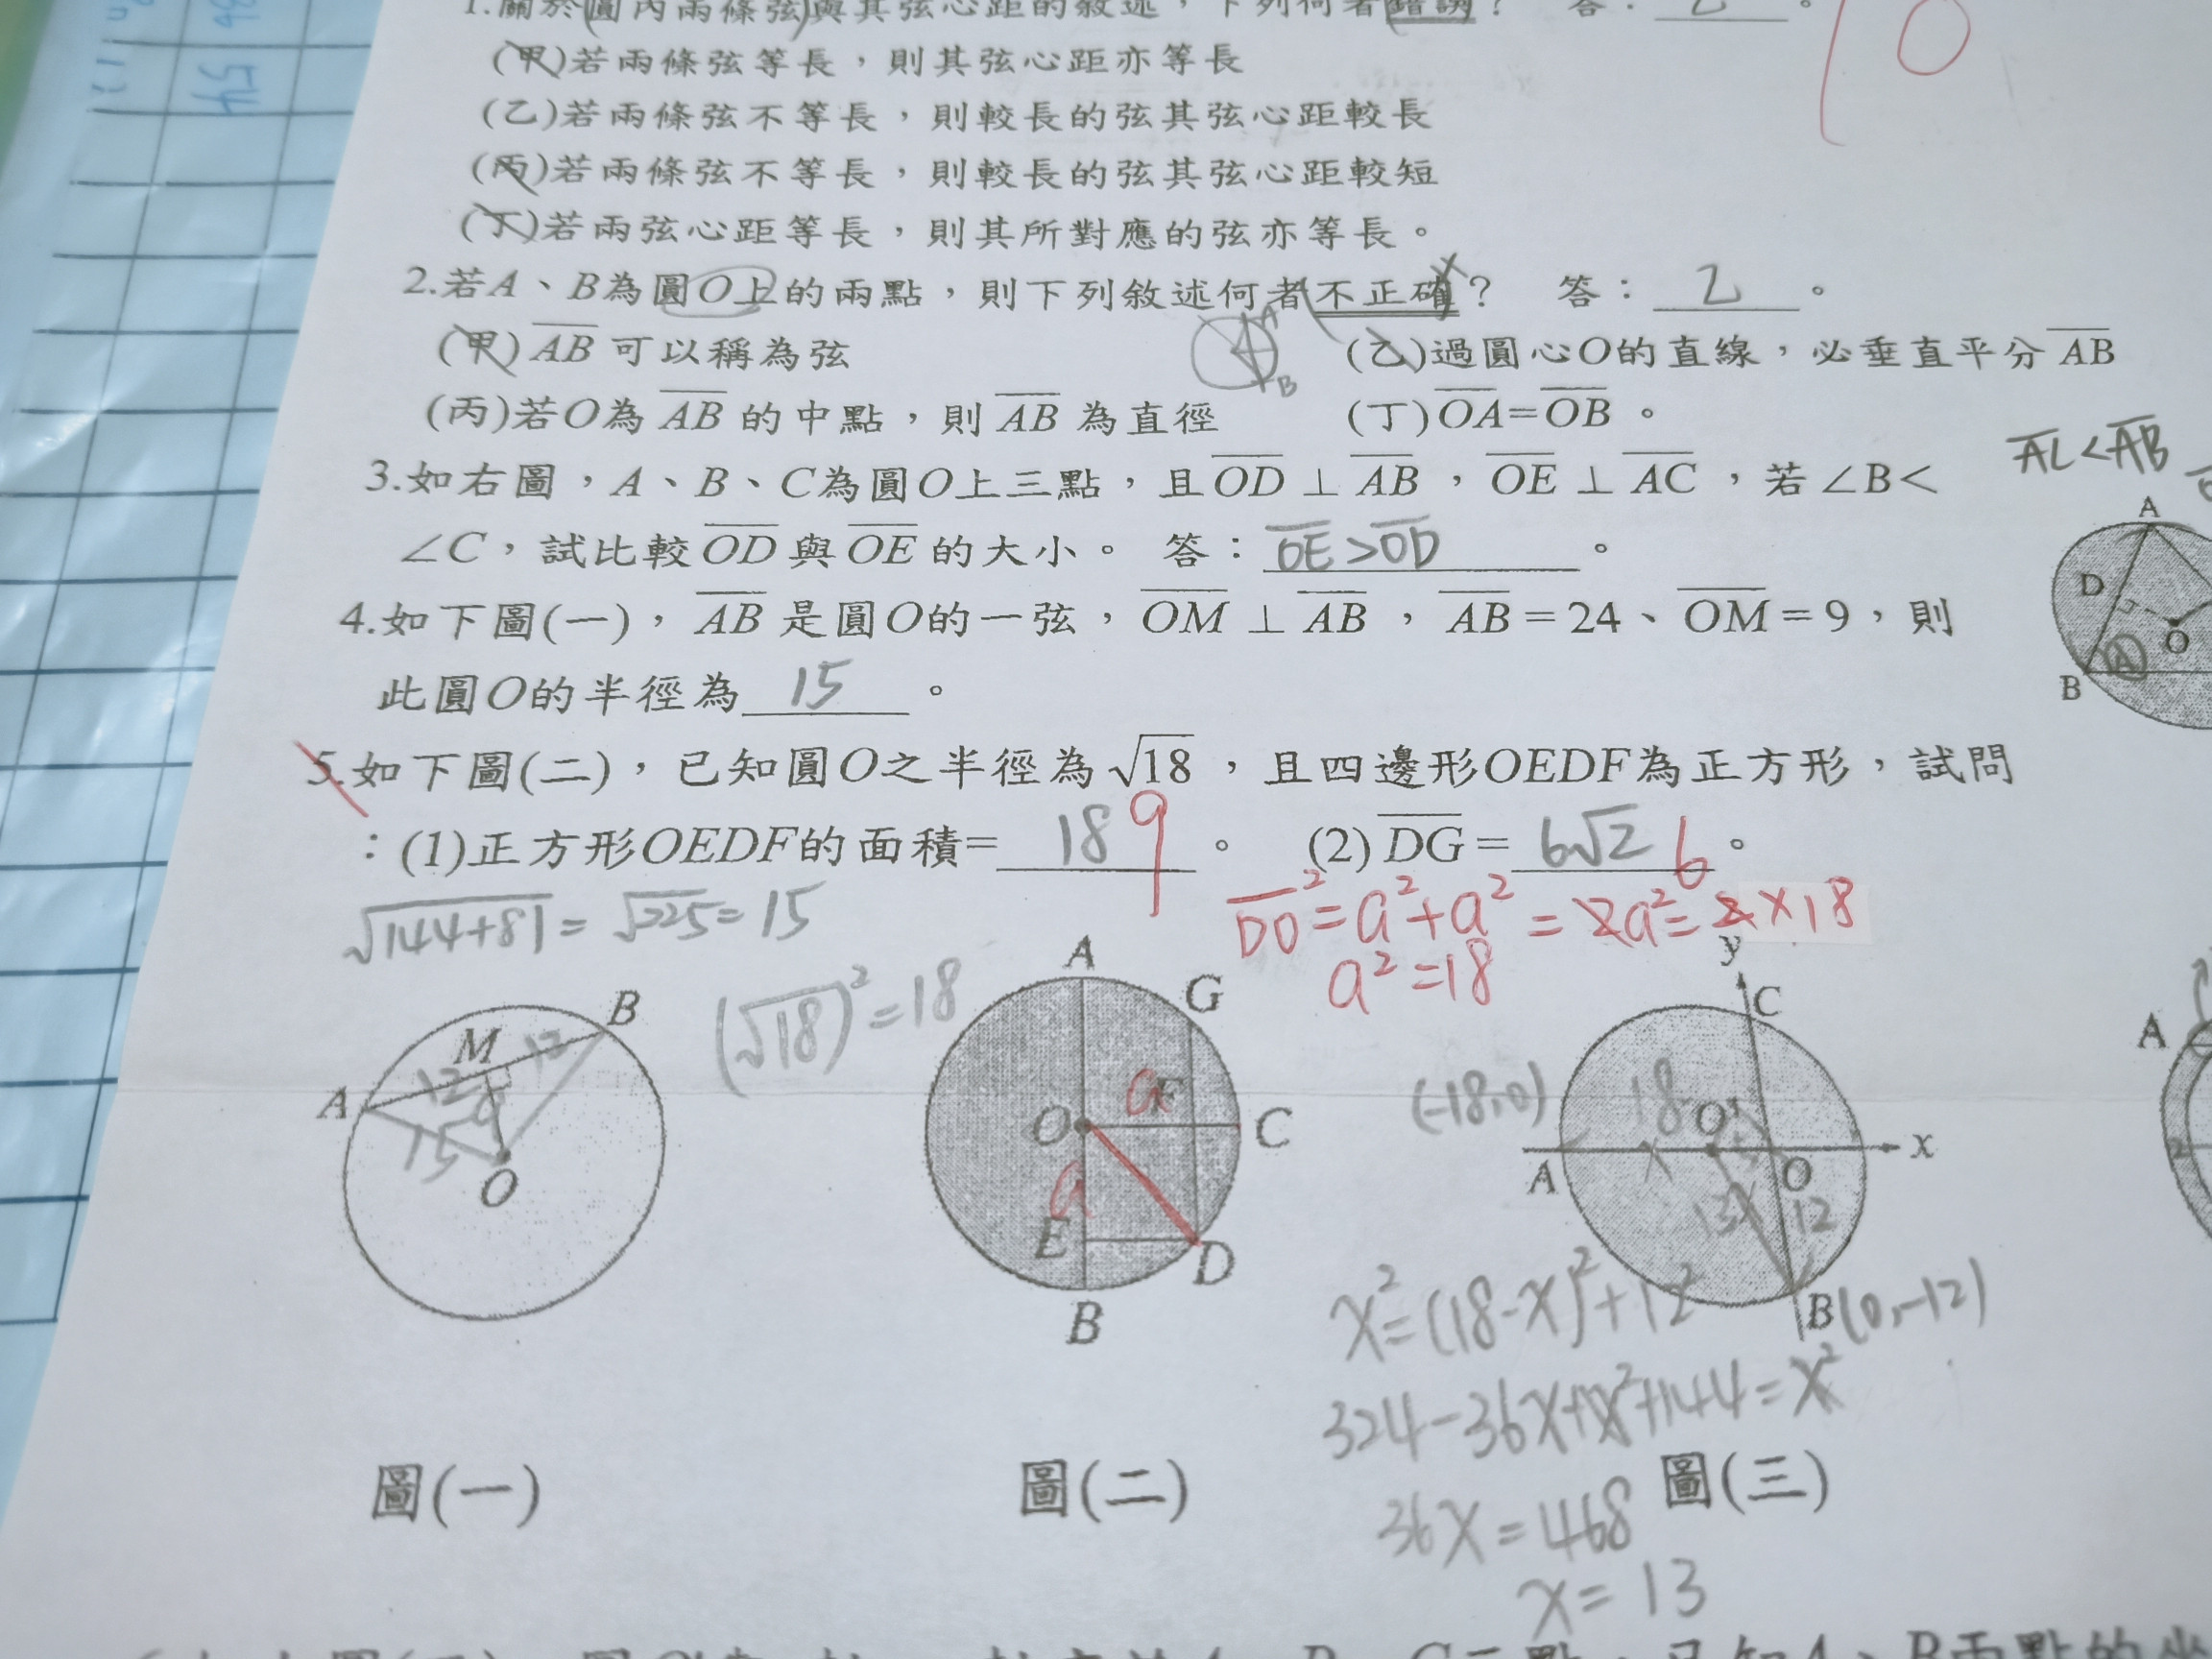 1.關於圓內兩條弦與其弦心距的敘述,下列何者錯誤? 答: 乙 。
10
(甲)若兩條弦等長,則其弦心距亦等長
(乙)若兩條弦不等長,則較長的弦其弦心距較長
(丙)若兩條弦不等長,則較長的弦其弦心距較短
(丁)若兩弦心距等長,則其所對應的弦亦等長。
2.若A、B為圓O上的兩點,則下列敘述何者不正確? 答: 乙 。
(甲) AB 可以稱為弦
A
B
(乙)過圓心O的直線,必垂直平分 AB
(丙)若O為 AB 的中點,則 AB 為直徑
(丁) OA=OB 。
3.如右圖,A、B、C為圓O上三點,且 OD ⊥ AB , OE ⊥ AC ,若∠B<
∠C,試比較 OD 與 OE 的大小。 答: OE>OD 。
AC<AB
A
D
O
B
4.如下圖(一), AB 是圓O的一弦, OM ⊥ AB , AB = 24、 OM = 9,則
此圓O的半徑為 15 。
5.如下圖(二),已知圓O之半徑為√18 ,且四邊形OEDF為正方形,試問
:(1)正方形OEDF的面積= 18 9 。 (2) DG = 6√2 6 。
√144+81 = √225 = 15
DO² = a²+a² = 2a² = 2×18
a² = 18
(√18)² = 18
A
M
B
12
12
9
15
O
A
G
a
F
O
C
a
E
D
B
y
C
(-18,0)
18
O'
x
A
x
O
13
12
B(0,-12)
A
2
x² = (18-x)²+12²
324-36x+x²+144 = x²
36x = 468
x = 13
圖(一)
圖(二)
圖(三)